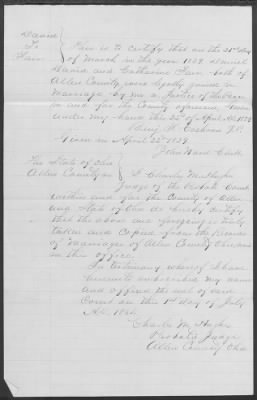 David
To
Fair
This is to certify that on the 21st day
of March in the year 1839 Daniel
David and Catharine Fair both of
Allen County were legally joined in
Marriage by me a Justice of the Peace
in and for the County aforesaid Given
under my hand this 22d of April AD 1839
J.P.
Given in April 22d 1839
John Ward Clerk
The State of Ohio
Allen County ss
I Charles M Hughes
Judge of the Probate Court
within and for the County of Allen
and State of Ohio do hereby certify
that the above and foregoing is truly
taken and Copied from the Records
of Marriages of Allen County Ohio and
in this office.
In testimony whereof I have
hereunto subscribed my name
and affixed the seal of said
Court on this 1st day of July
A.D. 1864
Charles M. Hughes
Probate Judge
Allen County Ohio